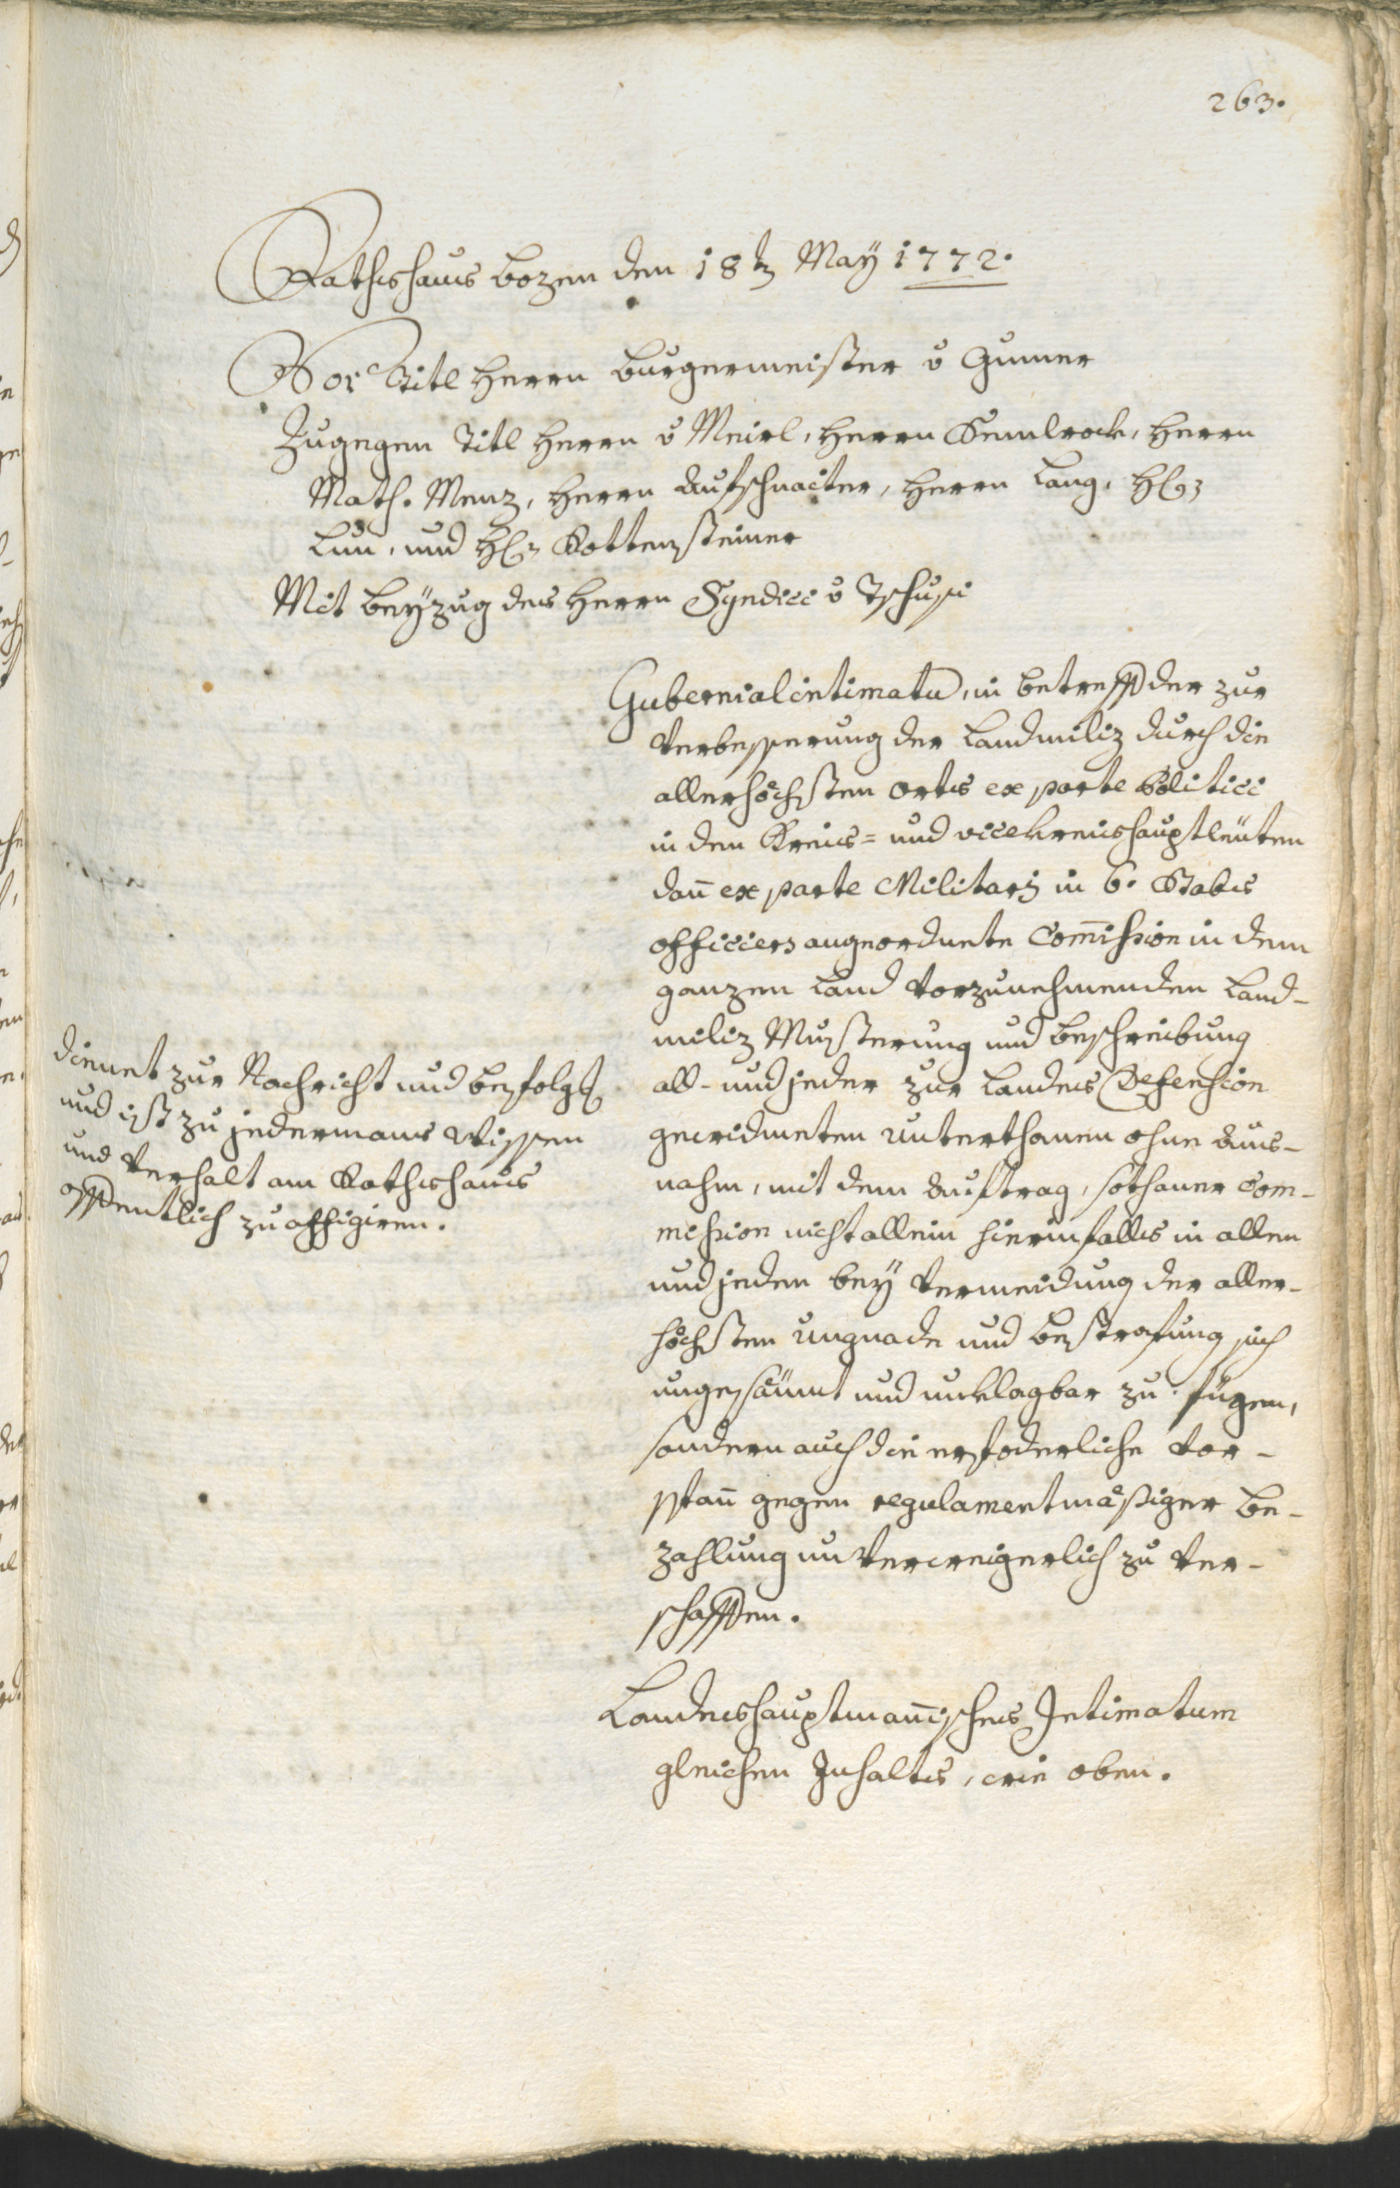 263.
Rathshaus Bozen den 18t May 1772.
Vor Titl Herrn Burgermeister v Gumer
Zugegen Titl Herrn v Meirl, Herrn Kemlrock, Herrn
Math. Menz, Herrn Aufschnaiter, Herrn Lang, H:
Lun, und H: Rottensteiner
Mit Beÿzug des Herrn Syndici v Tschusi
Gubernialintimatū, in Betreff der zur
Verbesserung der Landmiliz durch die
allerhöchsten Orts ex parte Politici
in den Kreis= und vicekreishauptleüten
dan̄ ex parte Militaris in 6. Stabs
officiers angeordnete Com̄ission in dem
ganzen Land vorzunehmenden Land-
miliz Musterung und Beschreibung
all- und jeder zur Landes Defension
gewidmeten Unterthanen ohne Aus-
nahm, mit dem Auftrag, sothaner Com-
mission nicht allein hierinfalls in allen
und jeden beÿ Vermeidung der aller-
höchsten Ungnade und Bestrafung sich
ungesäumt und unklagbar zu fügen,
sondern auch die erfoderliche Vor-
span̄ gegen regulamentmäßiger Be-
zahlung unverweigerlich zu ver-
schaffen.
dienet zur Nachricht und Befolg
und ist zu jedermans Wissen
und Verhalt am Rathshaus
öffentlich zu affigiren.
Landeshauptman̄isches Intimatum
gleichen Inhalts, wie oben.